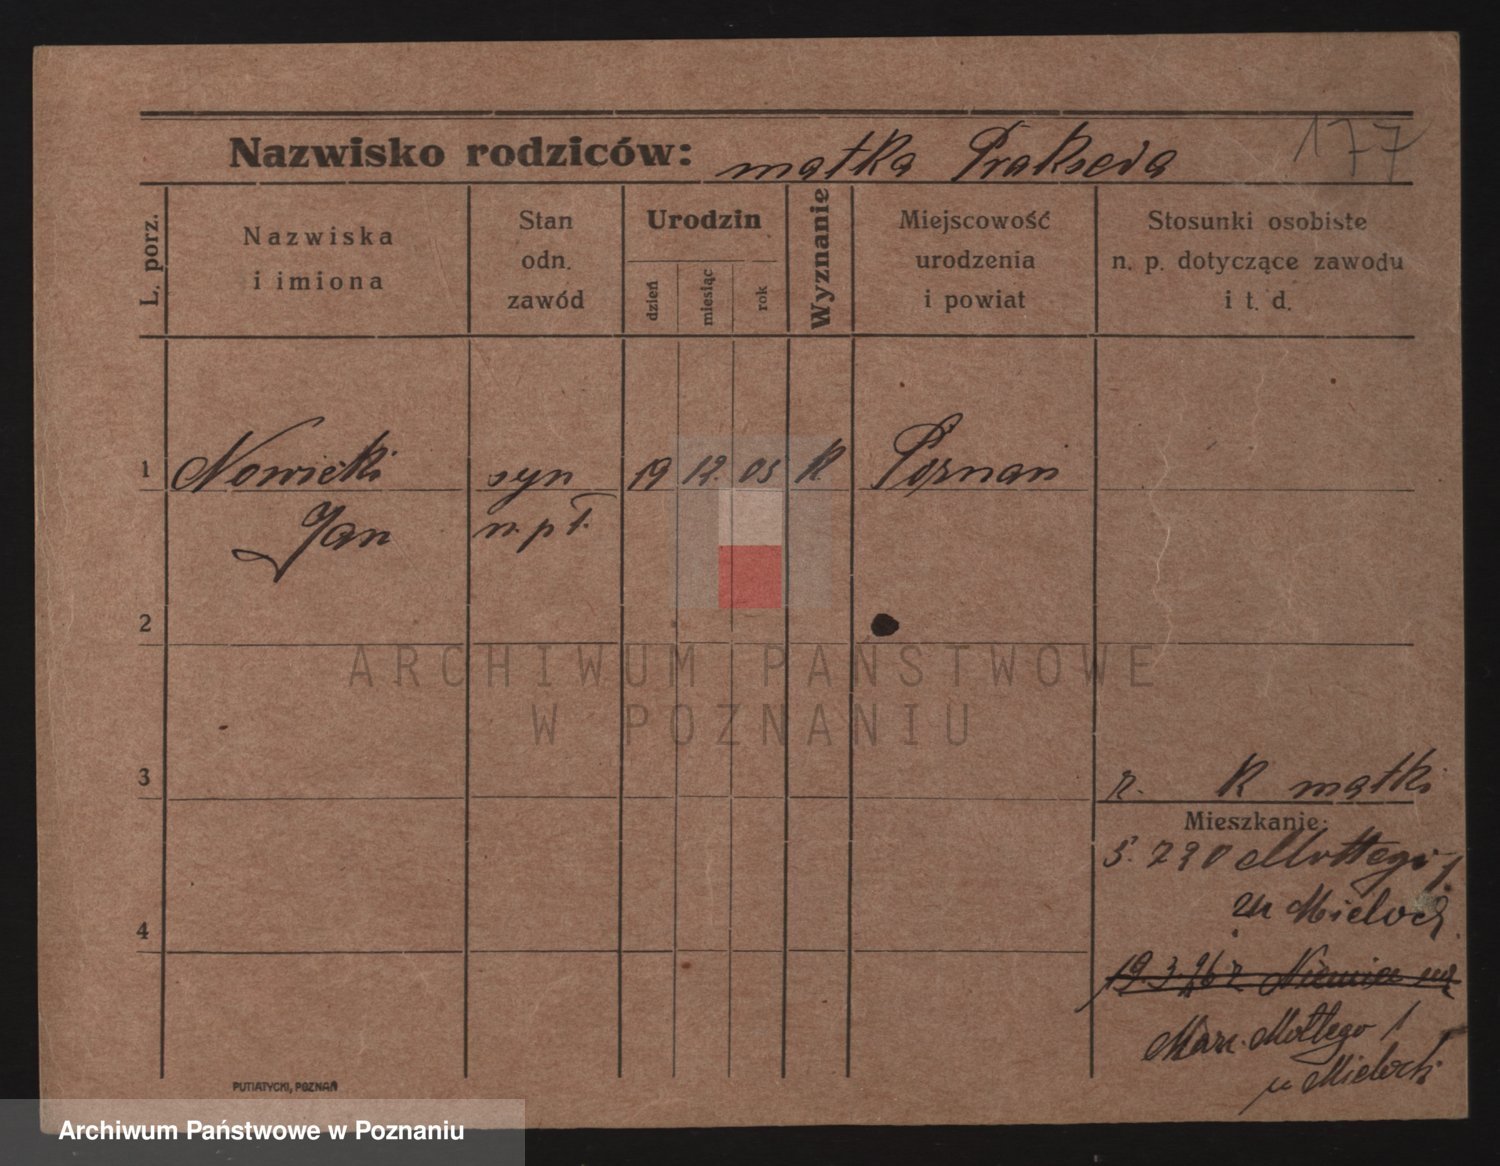 177
Nazwisko rodziców: matka Prakseda
L. porz.
Nazwiska
i imiona
Stan
odn.
zawód
Urodzin
dzień
miesiąc
rok
Wyznanie
Miejscowość
urodzenia
i powiat
Stosunki osobiste
n. p. dotyczące zawodu
i t. d.
1 Nowicki syn 19 12. 05 K Poznań
Jan
2
ARCHIWUM PAŃSTWOWE
W POZNANIU
3
K matki
Mieszkanie:
Mottego 1
Mieloch
4
19.3.26 r
Marc. Mottego 1
u Mieloch
PUTIATYCKI, POZNAŃ
Archiwum Państwowe w Poznaniu